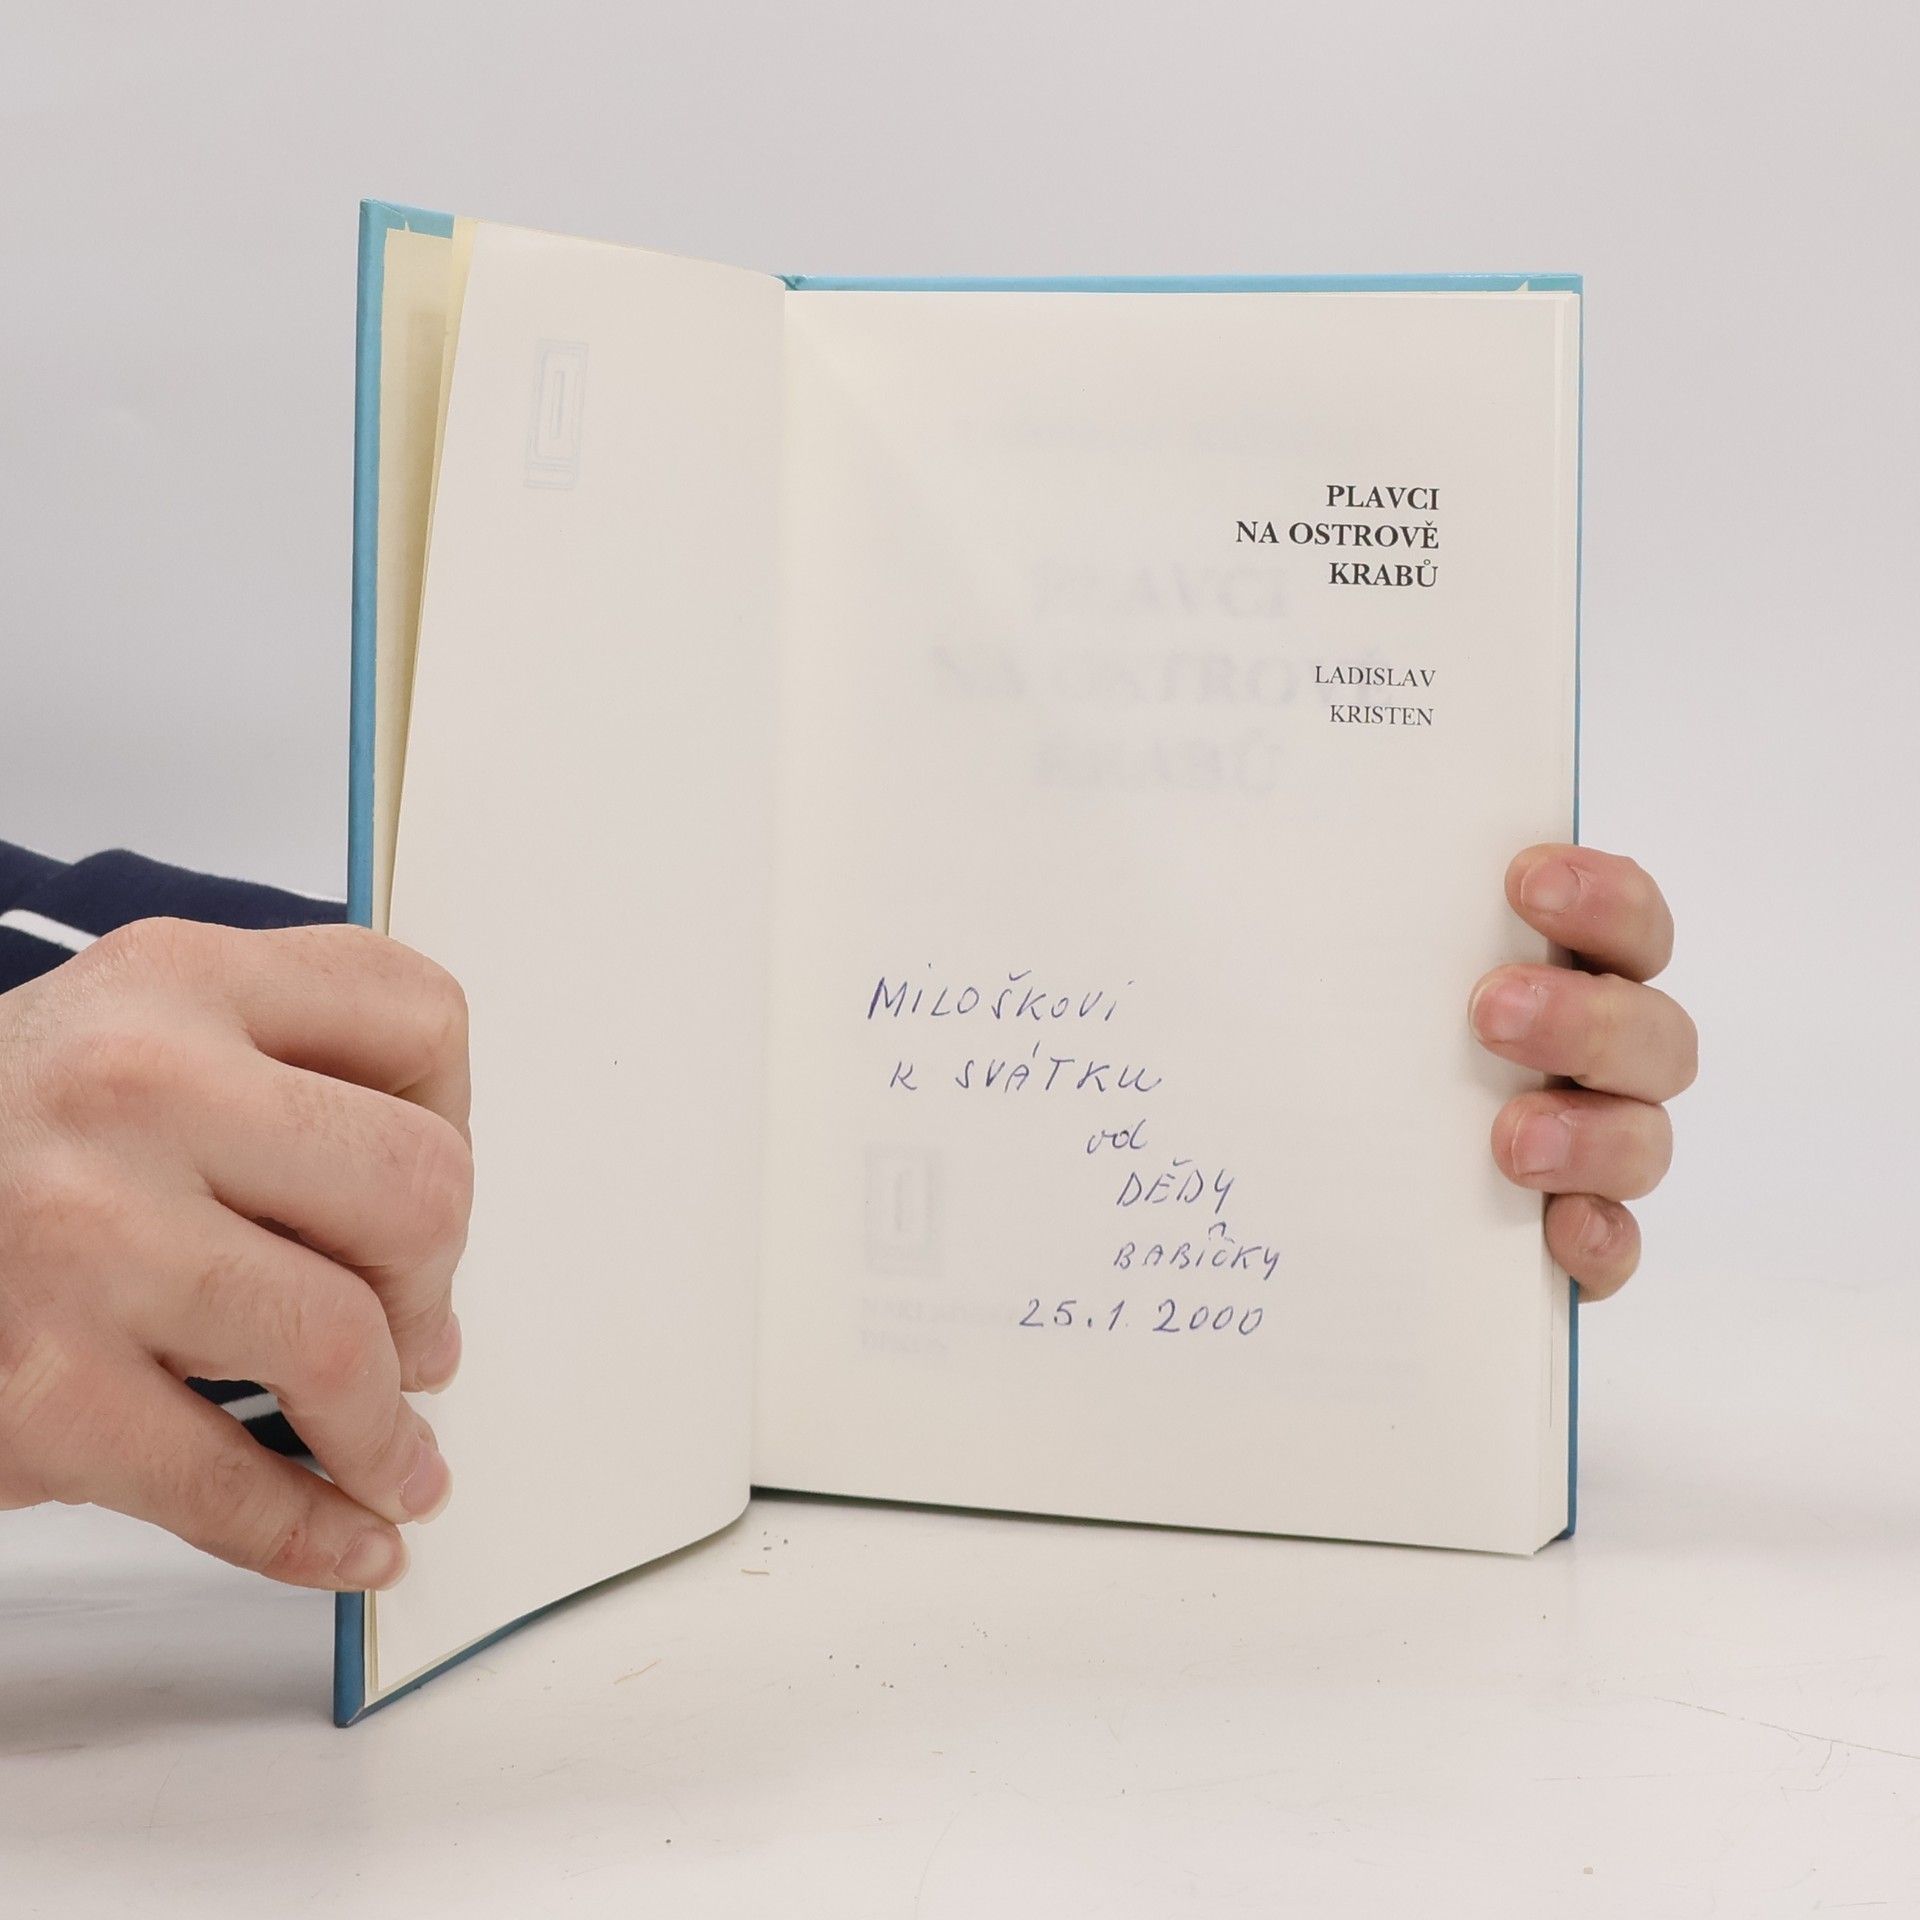 PLAVCI
NA OSTROVĚ
KRABŮ
LADISLAV
KRISTEN
MILOŠKOVI
K SVÁTKU
od
DĚDY
BABIČKY
25.1. 2000